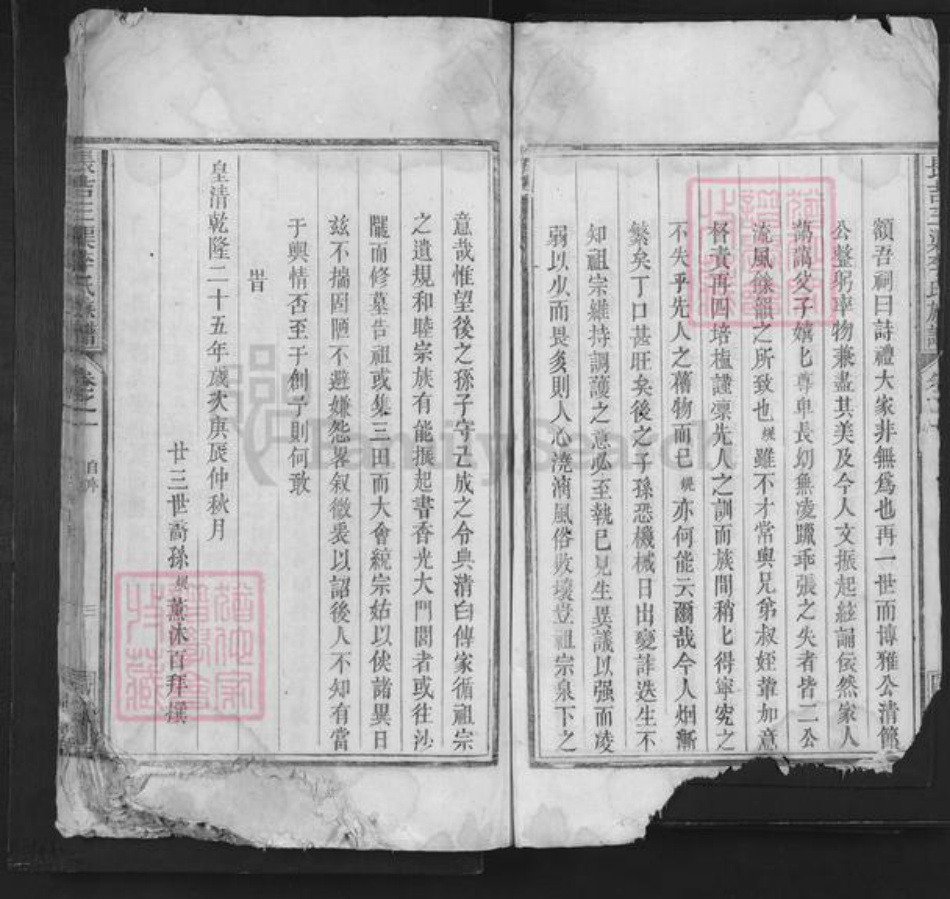 額吾祠曰詩禮大家非無爲也再一世而博雅公清簡
公整躬率物兼盡其美及今人文振起絃誦倐然家人
父子嬉匕尊卑長幼無凌躐乖張之失者皆二公
流風餘韻之所致也 雖不才常與兄弟叔姪輩加意
督責再四培植謹禀先人之訓而族間稍匕得寧究之
不失乎先人之舊物而已 亦何能云爾哉今人烟漸
繁矣丁口甚旺矣後之子孫恐機械日出變詐迭生不
知祖宗維持調護之意必至執已見生異議以强而凌
弱以少而畏多則人心澆漓風俗敗壞豈祖宗泉下之
意哉惟望後之孫子守已成之令典清白傳家循祖宗
之遺規和睦宗族有能振起書香光大門閭者或往沙
隴而修墓告祖或集三田而大會統宗姑以俟諸異日
兹不揣固陋不避嫌怨畧叙徵奚以詔後人不知有當
于輿情否至于創守則何敢
旹
皇清乾隆二十五年歲次庚辰仲秋月
廿三世裔孫 薰沐百拜撰
長吉三溧李氏族譜 卷之一 自叙 三